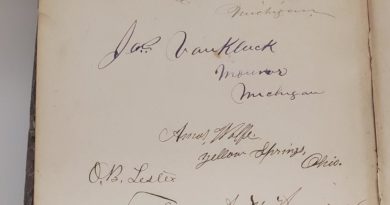 Michigan
Jas VanKluck
Monroe
Michigan
Amos Wolfe
Yellow Springs,
Ohio.
O.B. Lester